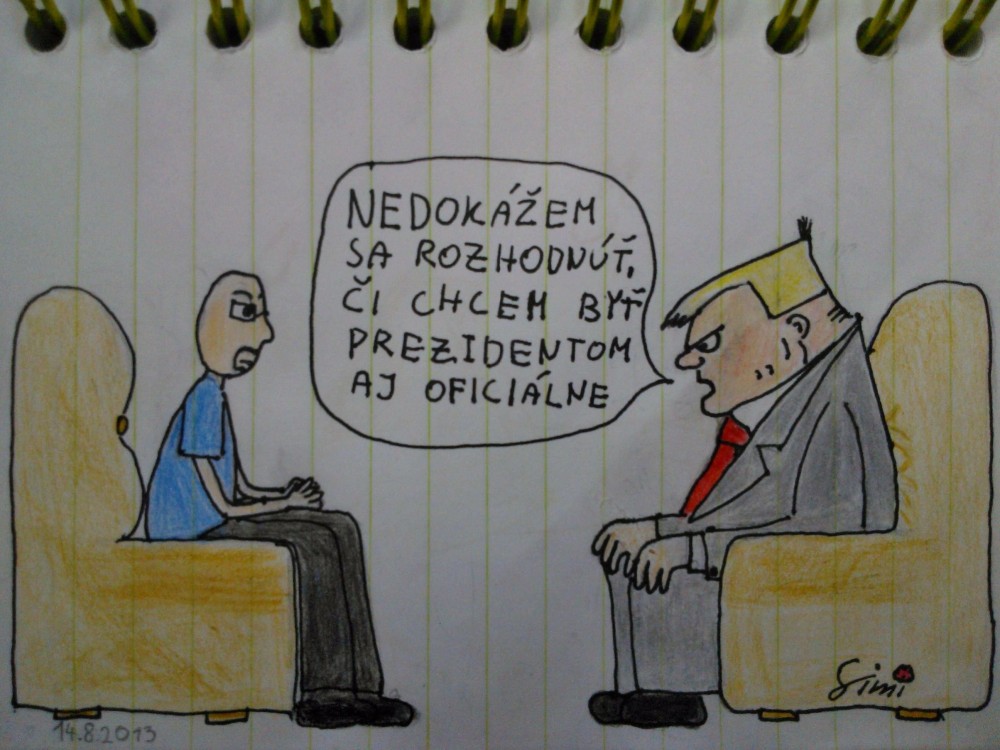 NEDOKÁŽEM
SA ROZHODNÚŤ,
ČI CHCEM BYŤ
PREZIDENTOM
AJ OFICIÁLNE
Simi
14.8.2013